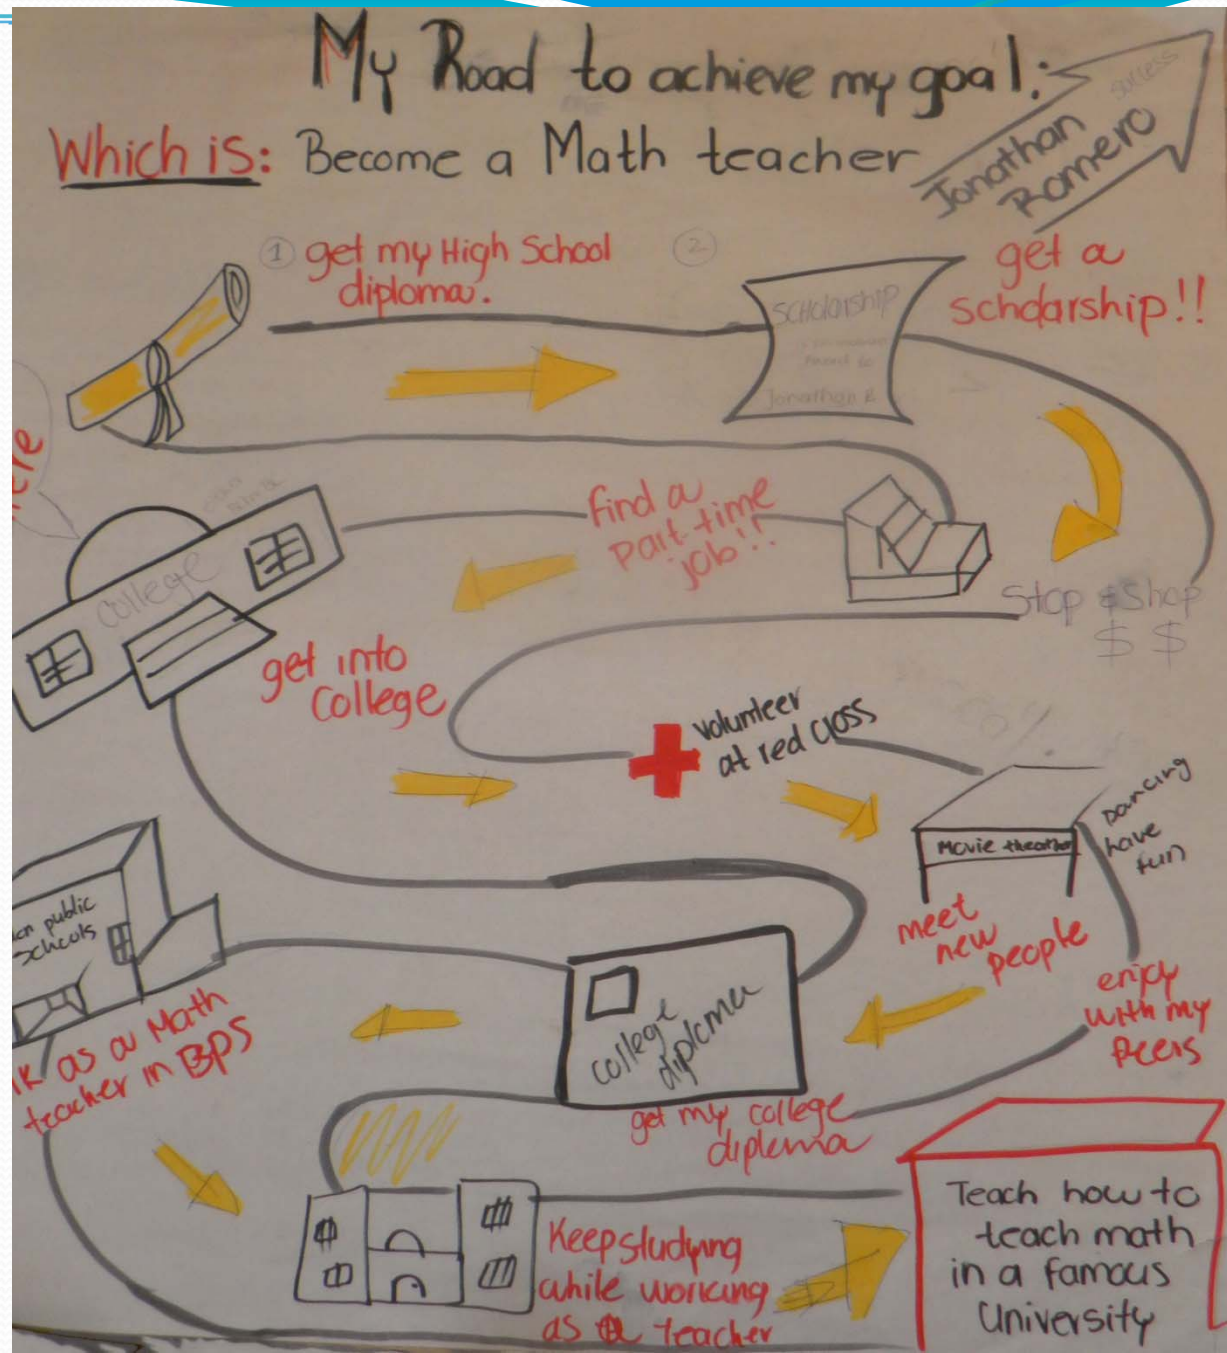 My Road to achieve my goal:
Which is: Become a Math teacher
success
Jonathan
Romero
1 get my High School
diploma.
2
get a
schdarship!!
SCHOlarship
Jonathan R
here
find a
part-time
job!!
College
get into
College
Stop & Shop
$ $
volunteer
at red cross
Movie theather
Dancing
have
fun
meet
new
people
enjoy
with my
peers
public
schools
as a Math
teacher in BPS
college
diploma
get my college
diploma
Keep studying
while working
as a teacher
Teach how to
teach math
in a famous
University